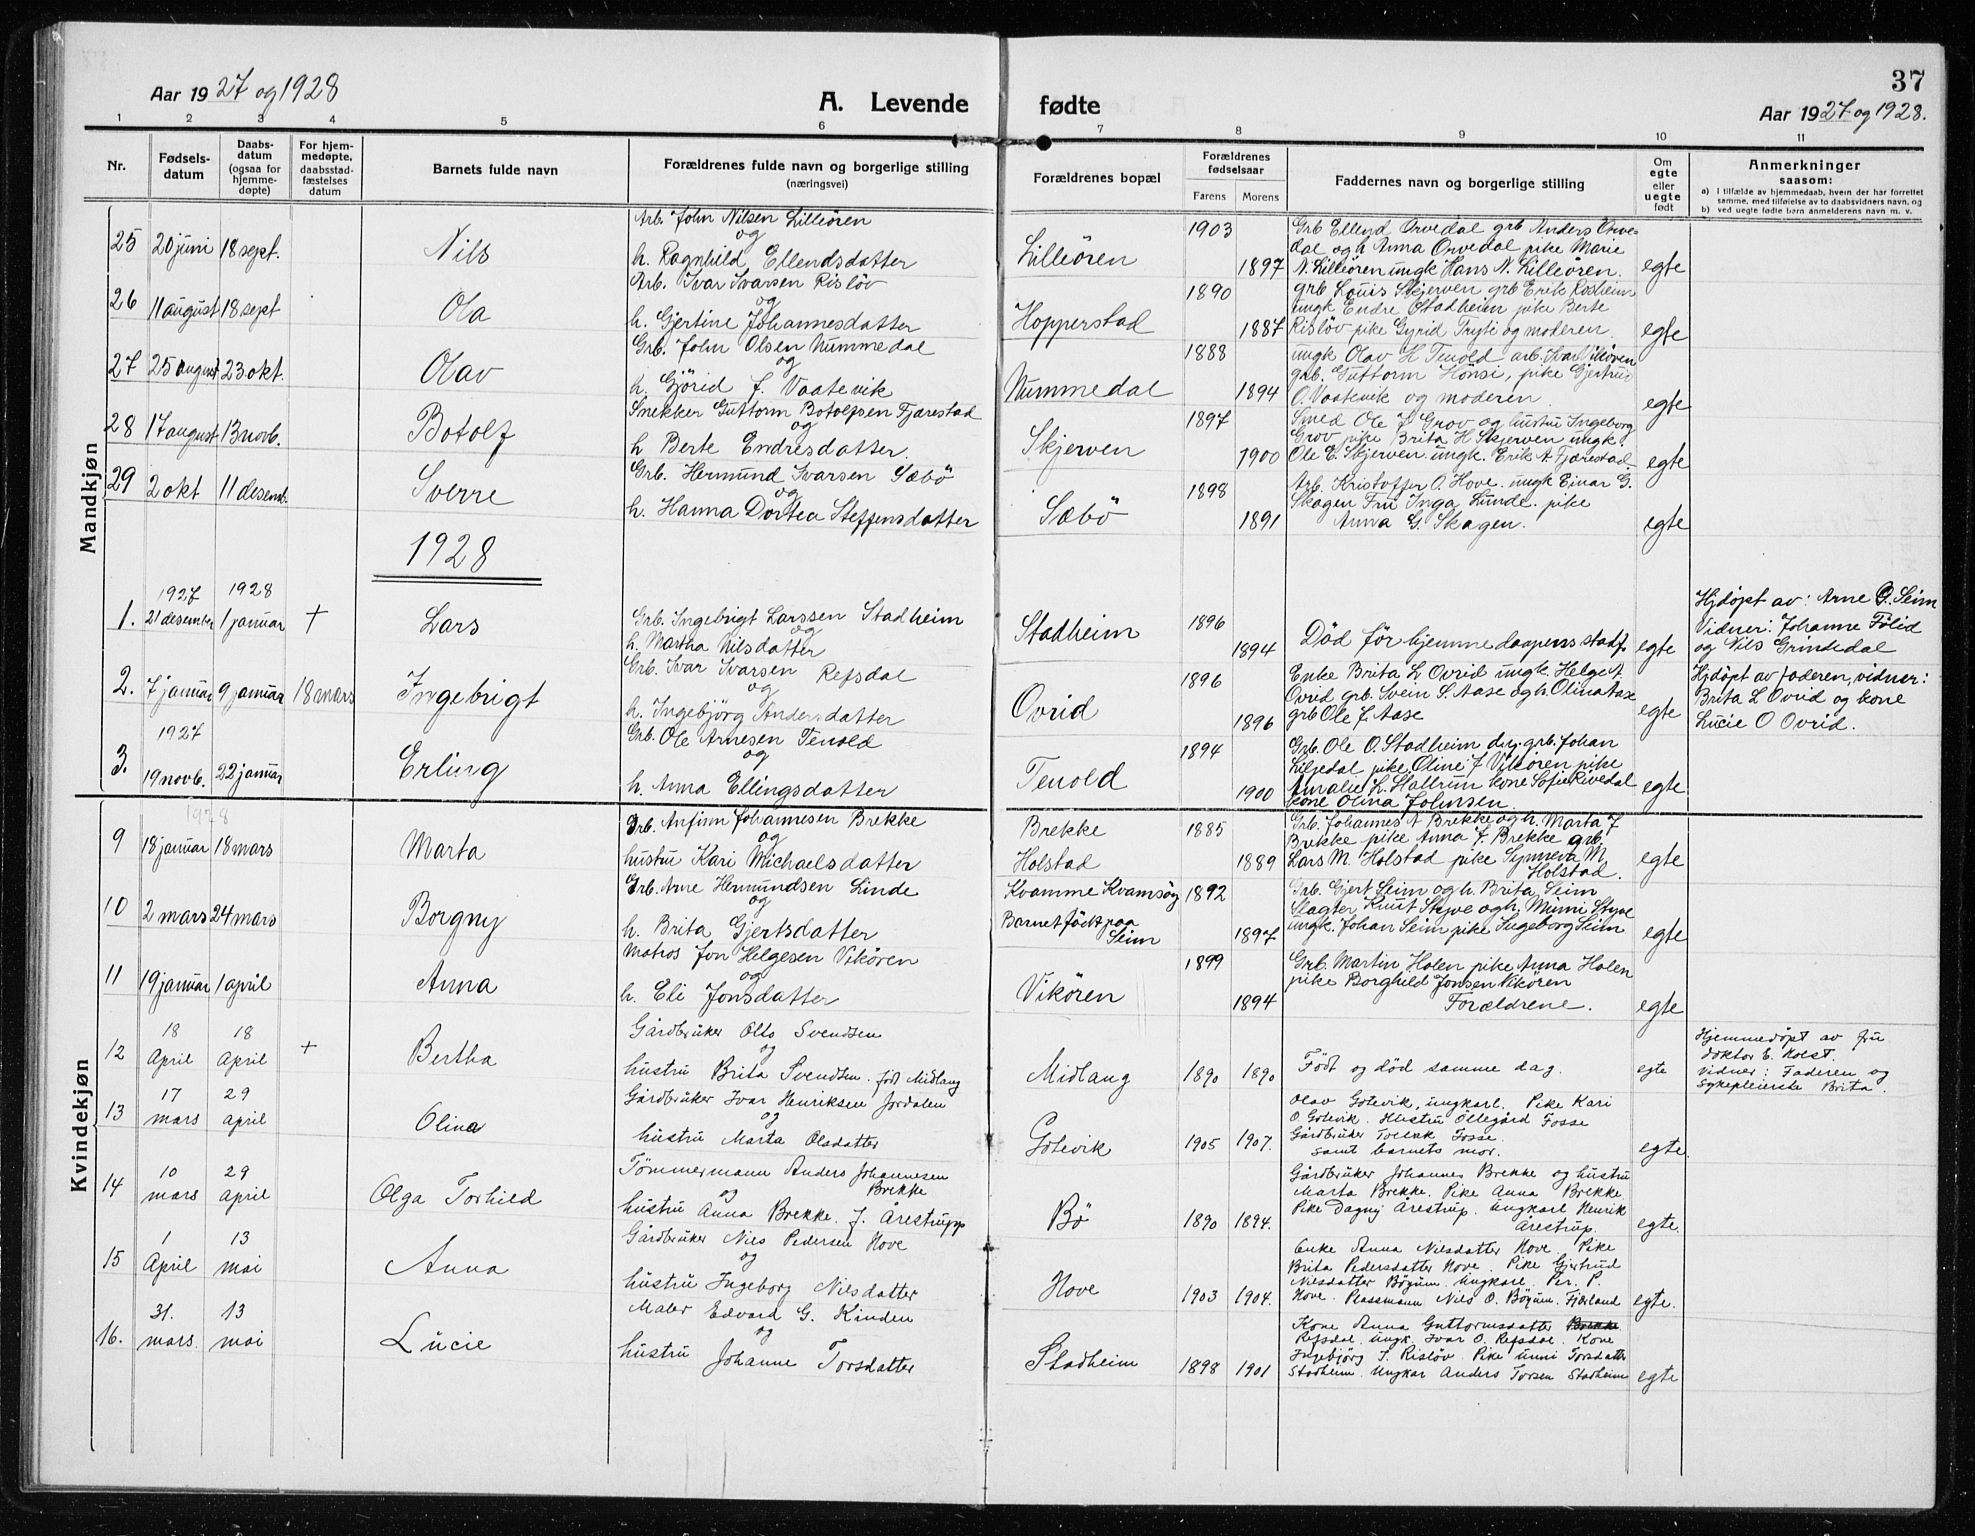 37
Aar 1927 og 1928
A. Levende fødte
Aar 1927 og 1928.
1 2 3 4 5 6 7 8 9 10 11
Nr.
Fødsels-
datum
Daabs-
datum
(ogsaa for
hjemme-
døpte)
For hjem-
medøpte,
daabsstad-
fæstelses
datum
Barnets fulde navn
Forældrenes fulde navn og borgerlige stilling
(næringsvei)
Forældrenes bopæl
Forældrenes
fødselsaar
Farens Morens
Faddernes navn og borgerlige stilling
Om
egte
eller
uegte
født
Anmerkninger
saasom:
a) i tilfælde av hjemmedaab, hvem der har forrettet
samme, med tilføielse av to daabsvidners navn, og
b) ved uegte fødte barn anmelderens navn m. v.
Mandkjøn
25 20 juni 18 sept. Nils
Arb. John Nilsen Lilleören
og
h. Ragnhild Ellendsdatter
Lilleören 1903 1897
Grb Ellend Orvedal grb Anders Orve
dal og h Anna Orvedal pike Marie
N. Lilleören ungk Hans N. Lilleören.
egte
26 11 august 18 sept Ola
Arb. Ivar Ivarsen Rislöv
og
h. Gjertine Johannesdatter
Hopperstad 1890 1887
grb Louis Skjerven grb Erik Rodheim
ungk Endre Stadheim pike Berte
Rislöv pike Gyrid Tryti og moderen
egte
27 25 august 23 okt. Olav
Grb. John Olsen Nummedal
og
h. Gjörid J. Vaatevik
Nummedal 1888 1894
ungk Olav H Tenold arb. Ivar Vikören
grb. Guttorm Hönsi, pike Gjertrud
O. Vaatevik og moderen.
egte
28 17 august 13 novb. Botolf
Snekker Guttorm Botolfsen Fjærestad
og
h Berte Endresdatter.
Skjerven 1897 1900
Smed Ole J Grov og hustru Ingeborg
Grov pike Brita H Skjerven ungk.
Ole E. Skjerven ungk. Erik A Fjærestad.
egte
29 2 okt 11 desemb. Sverre
Grb. Hermund Ivarsen Sæbö
og
h. Hanna Dortea Steffensdatter
Sæbö 1898 1891
Arb. Kristoffer O. Hove. ungk Einar G.
Skagen Fru Inga Lunde. pike
Anna G. Skagen.
egte
1928
1927 1928
1. 21 desember 1 januar + Lars
Grb. Ingebrigt Larssen Stadheim
og
h. Martha Nilsdatter
Stadheim 1896 1894
Död för hjemmedaapens stadf.
egte
Hjdöpt av: Arne G. Seim
Vidner: Johanne Fölid
og Nils Grindedal
2. 7 januar 9 januar 18 mars Ingebrigt
Grb. Ivar Ivarsen Refsdal
og
h. Ingebjörg Andersdatter
Ovrid 1896 1896
Enke Brita L Ovrid ungk. Helge A
Ovrid grb. Svein S. Aase og h. Olina Aase
grb Ole J. Aase
egte
Hjdöpt av faderen, vidner:
Brita L Ovrid og kone
Lucie O Ovrid.
1927
3. 19 novb. 22 januar Erling
Grb. Ole Arnesen Tenold
og
h. Anna Ellingsdatter
Tenold 1894 1900
Grb. Ole O. Stadheim drg. grb. Johan
Liljedal pike Oline J Vikören pike
Amalie L. Hallrun kone Sofie Rivedal
kone Olina Johnsen.
egte
Kvindekjøn
1928
9 18 januar 18 mars Marta
Grb. Anfinn Johannesen Brekke
og
hustru Kari Michaelsdatter
Brekke
Holstad
1885 1889
Grb. Johannes A Brekke og h. Marta J
Brekke pike Anna J. Brekke grb
Lars M. Holstad pike Synneva M
Holstad.
egte
10 2 mars 24 mars Borgny
Grb. Arne Hermundsen Linde
og
h. Brita Gjertsdatter
Kvamme Kvamsöy
Barnet födt paa
Seim
1892 1897
Grb. Gjert Seim og h. Brita Seim
Slagter Knut Styve og h. Mimi Styve
ungk. Johan Seim pike Ingeborg Seim
egte
11 19 januar 1 april Anna
Matros Jon Helgesen Vikören
og
h. Eli Jonsdatter
Vikören 1899 1894
Grb. Martin Holen pike Anna Holen
pike Borghild Jonsen Vikören
Forældrene.
egte
12 18 April 18 April + Bertha
Gårdbruker Olts Svendsen
og
hustru Brita Svendsen. født Midlang
Midlang 1890 1890
Født og død samme dag.
egte
Hjemmedøpt av fru
doktor E. Holst.
vidner: Faderen og
sykepleierske Brita.
13 17 mars 29 april Olina
Gårdbruker Ivar Henriksen Jordalen
og
hustru Marta Olsdatter
Gotevik 1905 1907.
Olav Gotevik, ungkarl. Pike Kari
O Gotevik. Hustru Ollegård Fosse
Gårdbruker Tollak Fosse.
samt barnets mor.
egte.
14 10 mars 29 april Olga Torhild
Tömmermann Anders Johannesen
Brekke
og
hustru Anna Brekke. f. Årestrupp
Bö 1890 1894.
Gårdbruker Johannes Brekke og hustru
Marta Brekke. Pike Anna Brekke
Pike Dagny Årestrup. Ungkarl Henrik
Årestrup.
egte.
15 1 April 13 mai Anna
Gårdbruker Nils Pedersen Hove
og
hustru Ingeborg Nilsdatter
Hove 1903 1904.
Enke Anna Nilsdatter Hove. Pike
Brita Pedersdatter Hove. Pike Gjertrud
Nilsdatter Bøyum. Ungkarl. Per. P.
Hove. Plassmann Nils O. Bøyum. Fjærland
egte.
16. 31. mars 13 mai Lucie
Maler Edvard G. Kinden
og
hustru Johanne Torsdatter
Stadheim 1898 1901
Kone Anna Guttormsdatter Brekke
Refsdal. ungk. Ivar O. Refsdal. Kone
Ingebjörg I. Rislöv. Pike Unni Torsdatter
Stadheim. Ungkar Anders Torsen Stadheim
egte